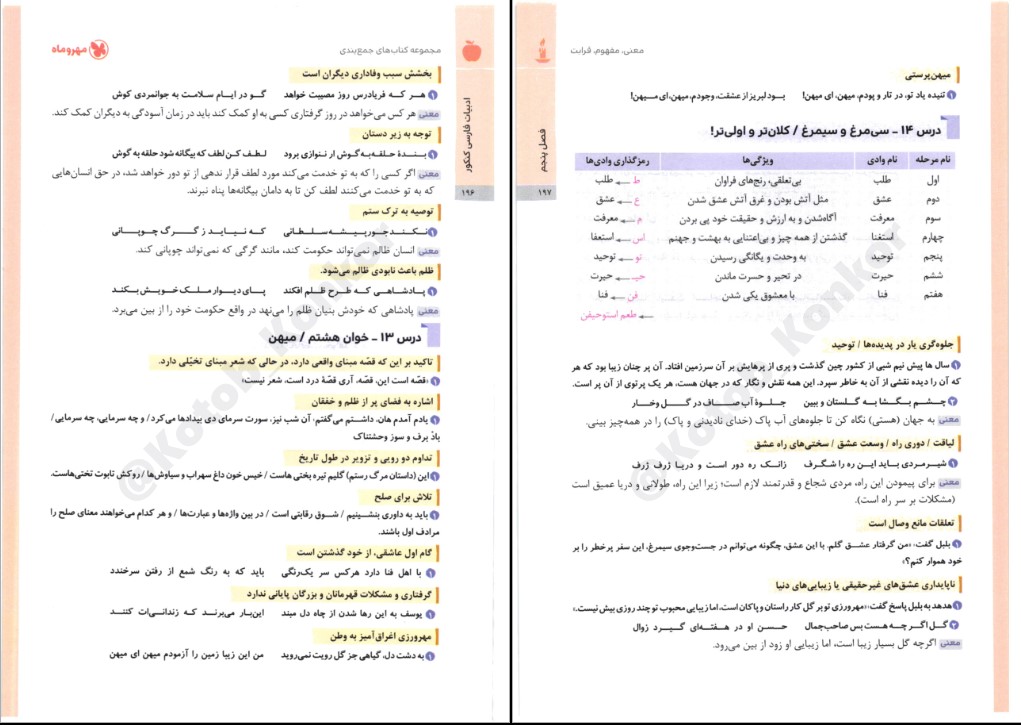 مهروماه
مجموعه کتاب‌های جمع‌بندی
ادبیات فارسی کنکور
۱۹۶
بخشش سبب وفاداری دیگران است
۱ هر که فریادرس روز مصیبت خواهد گو در ایام سلامت به جوانمردی کوش
معنی هر کس می‌خواهد در روز گرفتاری کسی به او کمک کند باید در زمان آسودگی به دیگران کمک کند.
توجه به زیر دستان
۱ بندهٔ حلقه‌به‌گوش ار ننوازی برود لطف کن لطف که بیگانه شود حلقه به گوش
معنی اگر کسی را که به تو خدمت می‌کند مورد لطف قرار ندهی از تو دور خواهد شد، در حق انسان‌هایی
که به تو خدمت می‌کنند لطف کن تا به دامان بیگانه‌ها پناه نبرند.
توصیه به ترک ستم
۱ نکند جورپیشه سلطانی که نیاید ز گرگ چوپانی
معنی انسان ظالم نمی‌تواند حکومت کند، مانند گرگی که نمی‌تواند چوپانی کند.
ظلم باعث نابودی ظالم می‌شود.
۱ پادشاهی که طرح ظلم افکند پای دیوار ملک خویش بکند
معنی پادشاهی که خودش بنیان ظلم را می‌نهد در واقع حکومت خود را از بین می‌برد.
درس ۱۳ ـ خوان هشتم / میهن
تاکید بر این که قصّه مبنای واقعی دارد، در حالی که شعر مبنای تخیّلی دارد.
۱ «قصّه است این، قصّه، آری قصّهٔ درد است، شعر نیست؛»
اشاره به فضای پر از ظلم و خفقان
۱ یادم آمد هان، داشتم می‌گفتم: آن شب نیز، سورت سرمای دی بیدادها می‌کرد / و چه سرمایی، چه سرمایی /
بادْ برف و سوز وحشتناک
تداوم دو رویی و تزویر در طول تاریخ
۱ این (داستان مرگ رستم) گلیم تیره بختی هاست / خیس خون داغ سهراب و سیاوش‌ها / روکش تابوت تختی‌هاست.
تلاش برای صلح
۱ باید به داوری بنشینیم / شوق رقابتی است / در بین واژه‌ها و عبارت‌ها / و هر کدام می‌خواهند معنای صلح را
مرادف اول باشند.
گام اول عاشقی، از خود گذشتن است
۱ با اهل فنا دارد هرکس سر یک‌رنگی باید که به رنگ شمع از رفتن سرخندد
گرفتاری و مشکلات قهرمانان و بزرگان پایانی ندارد
۱ یوسف به این رها شدن از چاه دل مبند این‌بار می‌برند که زندانی‌ات کنند
مهرورزی اغراق‌آمیز به وطن
۱ به دشت دل، گیاهی جز گل رویت نمی‌روید من این زیبا زمین را آزمودم میهن ای میهن
معنی، مفهوم، قرابت
فصل پنجم
۱۹۷
میهن‌پرستی
۱ تنیده یاد تو، در تار و پودم، میهن، ای میهن! بود لبریز از عشقت، وجودم، میهن، ای میهن!
درس ۱۴ ـ سی‌مرغ و سیمرغ / کلان‌تر و اولی‌تر!
نام مرحله نام وادی ویژگی‌ها رمزگذاری وادی‌ها
اول طلب بی‌تعلقی، رنج‌های فراوان ط ← طلب
دوم عشق مثل آتش بودن و غرق آتش عشق شدن ع ← عشق
سوم معرفت آگاه‌شدن و به ارزش و حقیقت خود پی بردن م ← معرفت
چهارم استغنا گذشتن از همه چیز و بی‌اعتنایی به بهشت و جهنم اس ← استعفا
پنجم توحید به وحدت و یگانگی رسیدن تو ← توحید
ششم حیرت در تحیر و حسرت ماندن حیـ ← حیرت
هفتم فنا با معشوق یکی شدن فن ← فنا
← طعم استوحیفن
جلوه‌گری یار در پدیده‌ها / توحید
۱ سال ها پیش نیم شبی از کشور چین گذشت و پری از پرهایش بر آن سرزمین افتاد. آن پر چنان زیبا بود که هر
که آن را دیده نقشی از آن به خاطر سپرد. این همه نقش و نگار که در جهان هست، هر یک پرتوی از آن پر است.
۲ چشم بگشا به گلستان و ببین جلوهٔ آب صاف در گل و خار
معنی به جهان (هستی) نگاه کن تا جلوه‌های آب پاک (خدای نادیدنی و پاک) را در همه‌چیز بینی.
لیاقت / دوری راه / وسعت عشق / سختی‌های راه عشق
۱ شیرمردی باید این ره را شگرف زانک ره دور است و دریا ژرف ژرف
معنی برای پیمودن این راه، مردی شجاع و قدرتمند لازم است؛ زیرا این راه، طولانی و دریا عمیق است
(مشکلات بر سر راه است).
تعلقات مانع وصال است
۱ بلبل گفت: «من گرفتار عشق گلم. با این عشق، چگونه می‌توانم در جست‌وجوی سیمرغ، این سفر پرخطر را بر
خود هموار کنم؟»
ناپایداری عشق‌های غیرحقیقی یا زیبایی‌های دنیا
۱ هدهد به بلبل پاسخ گفت: «مهرورزی تو بر گل کار راستان و پاکان است، اما زیبایی محبوب تو چند روزی بیش نیست.»
۲ گل اگر چه هست بس صاحب‌جمال حسن او در هفته‌ای گیرد زوال
معنی اگرچه گل بسیار زیبا است، اما زیبایی او زود از بین می‌رود.
@Kotob_Konkor
@Kotob_Konkor